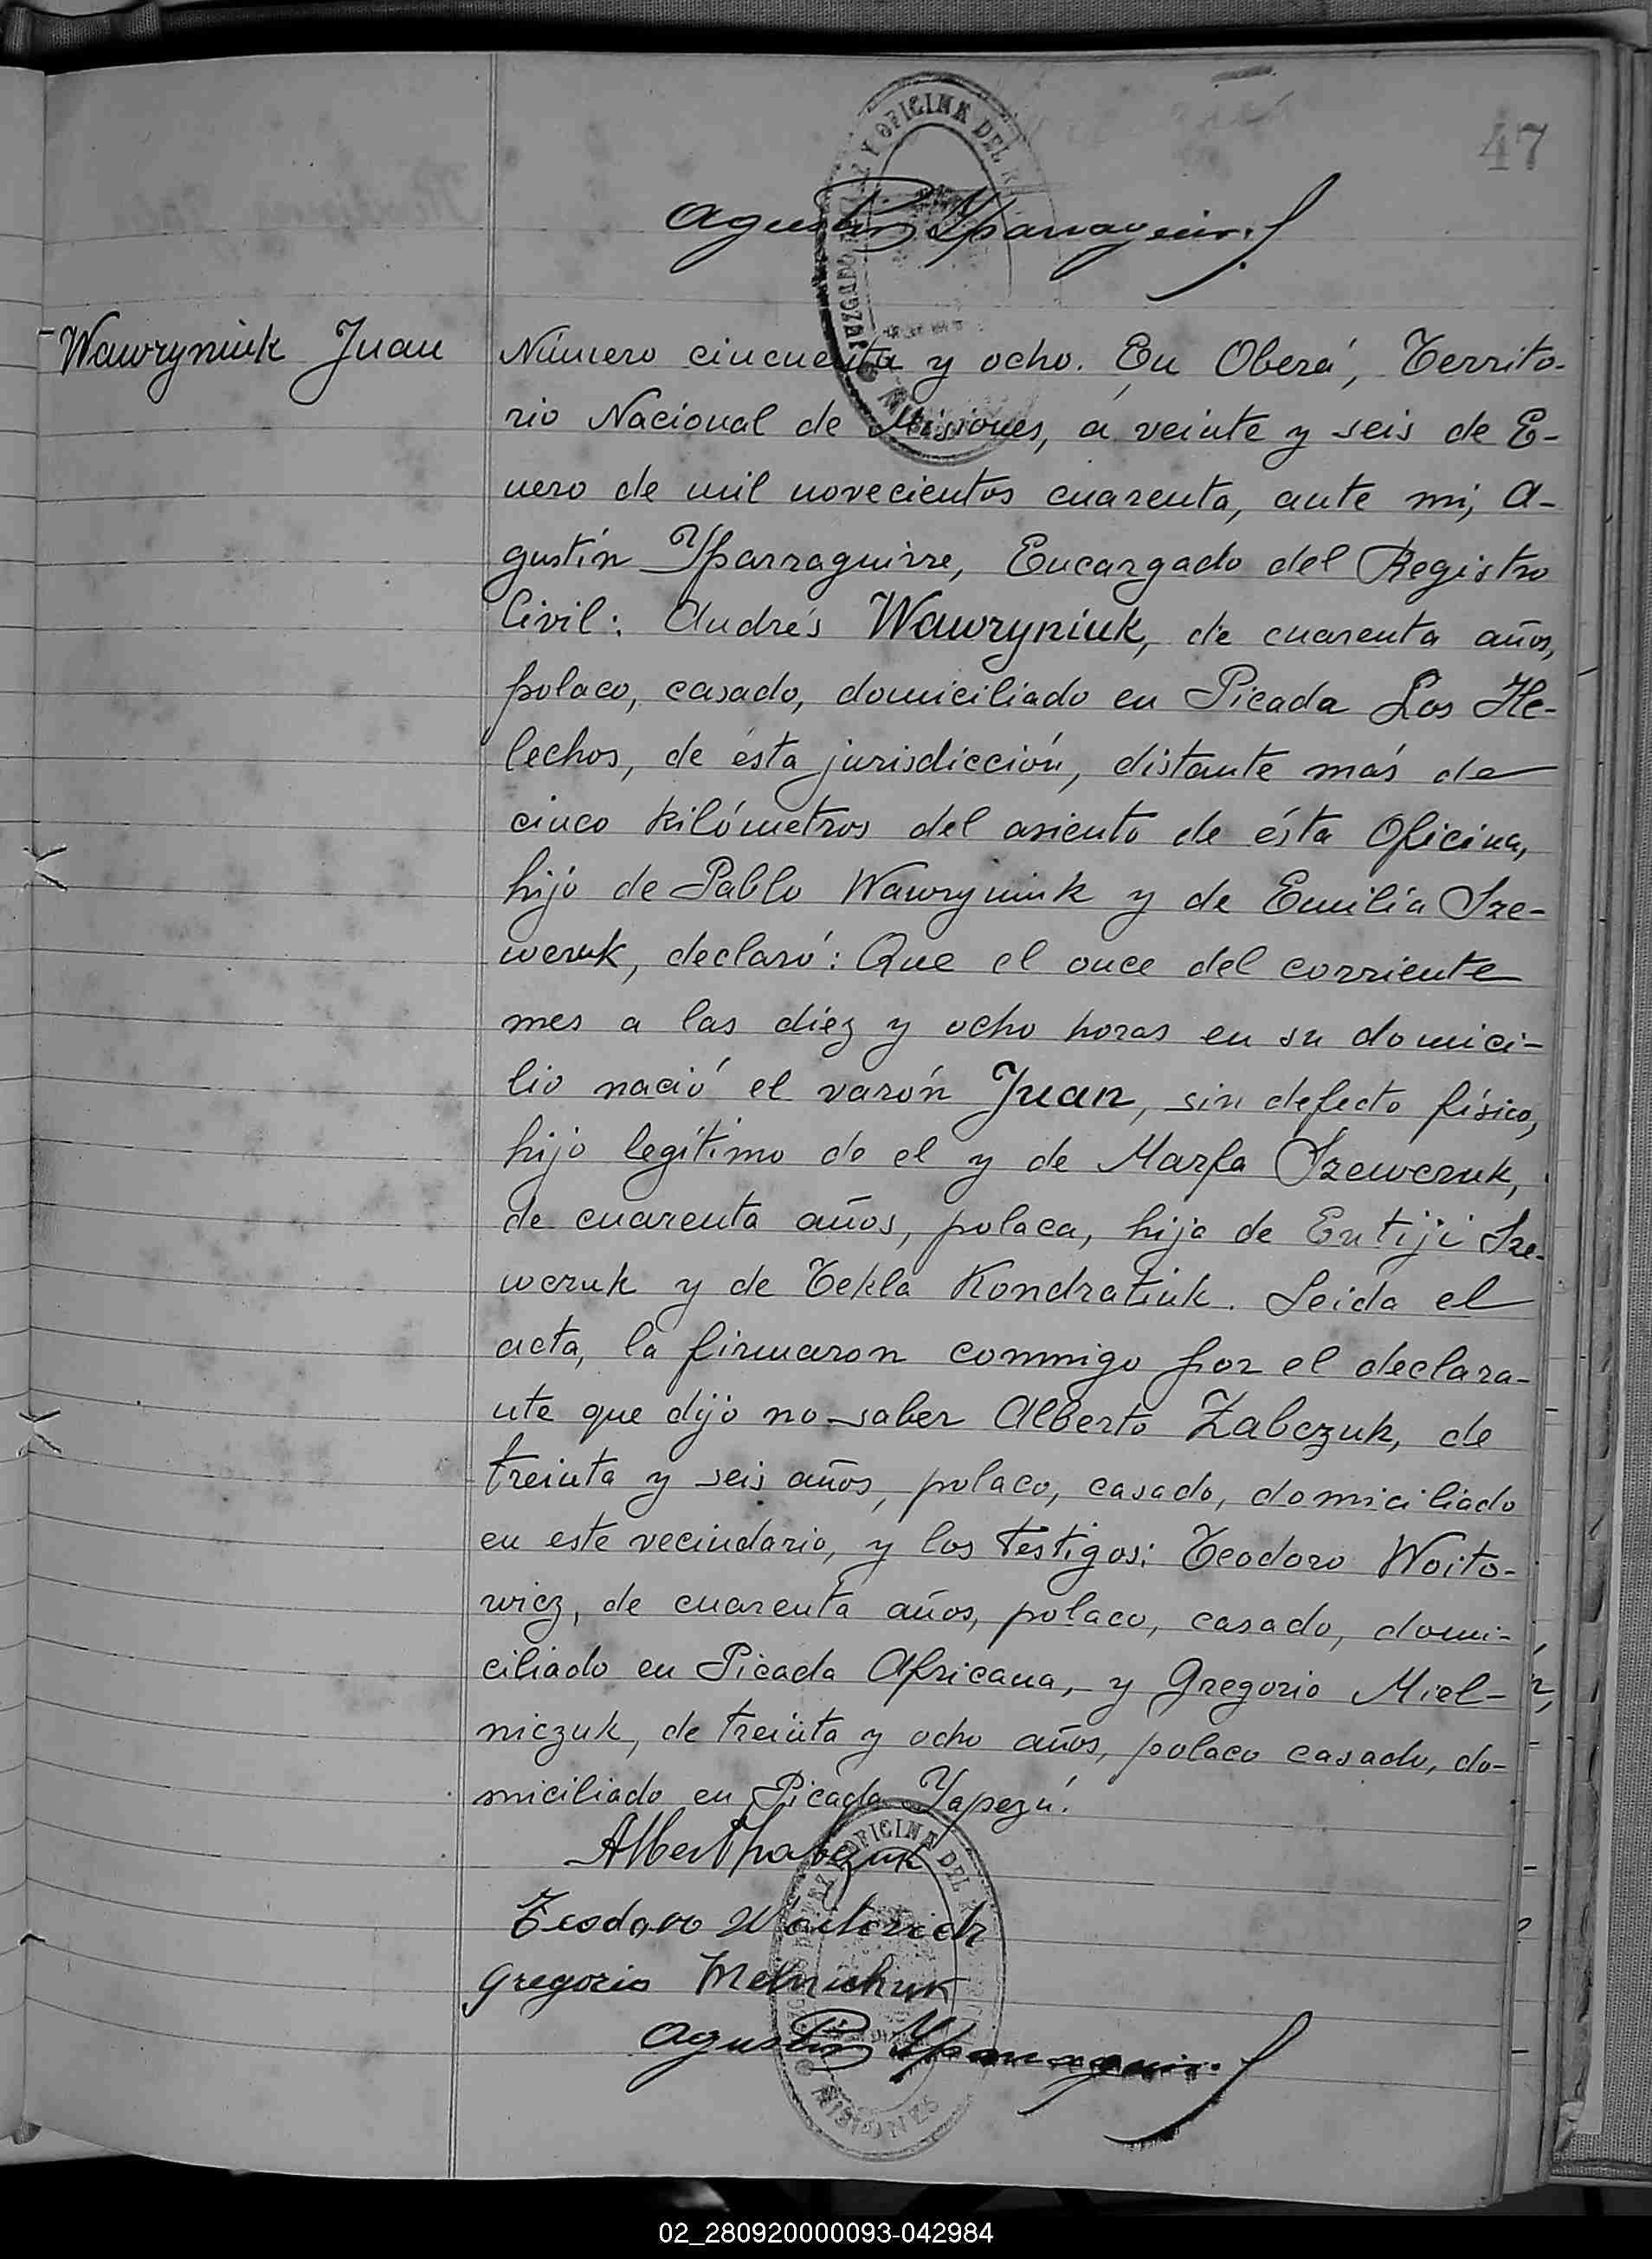 47
Agustín Yparraguirre
Wawryniuk Juan
Número cincuenta y ocho. En Oberá, Territo-
rio Nacional de Misiones, a veinte y seis de E-
nero de mil novecientos cuarenta, ante mi, A-
gustín Yparraguirre, Encargado del Registro
Civil: Andrés Wawryniuk, de cuarenta años,
polaco, casado, domiciliado en Picada Los He-
lechos, de ésta jurisdicción, distante más de
cinco kilómetros del asiento de ésta Oficina,
hijo de Pablo Wawryniuk y de Emilia Sze-
wcruk, declaró: Que el once del corriente
mes a las diez y ocho horas en su domici-
lio nació el varón Juan, sin defecto físico,
hijo legítimo de el y de Marfa Szewcruk,
de cuarenta años, polaca, hija de Entiji Sze-
wcruk y de Tekla Kondratiuk. Leida el
acta, la firmaron conmigo por el declara-
nte que dijo no saber Alberto Zabczuk, de
treinta y seis años, polaco, casado, domiciliado
en este vecindario, y los testigos: Teodoro Woito-
wicz, de cuarenta años, polaco, casado, domi-
ciliado en Picada Africana, y Gregorio Miel-
niczuk, de treinta y ocho años, polaco casado, do-
miciliado en Picada Yapeyú.
Teodoro Woitovich
Gregorio Melnichuk
Agustín Yparraguirre
OFICINA DEL
MISIONES
02_280920000093-042984